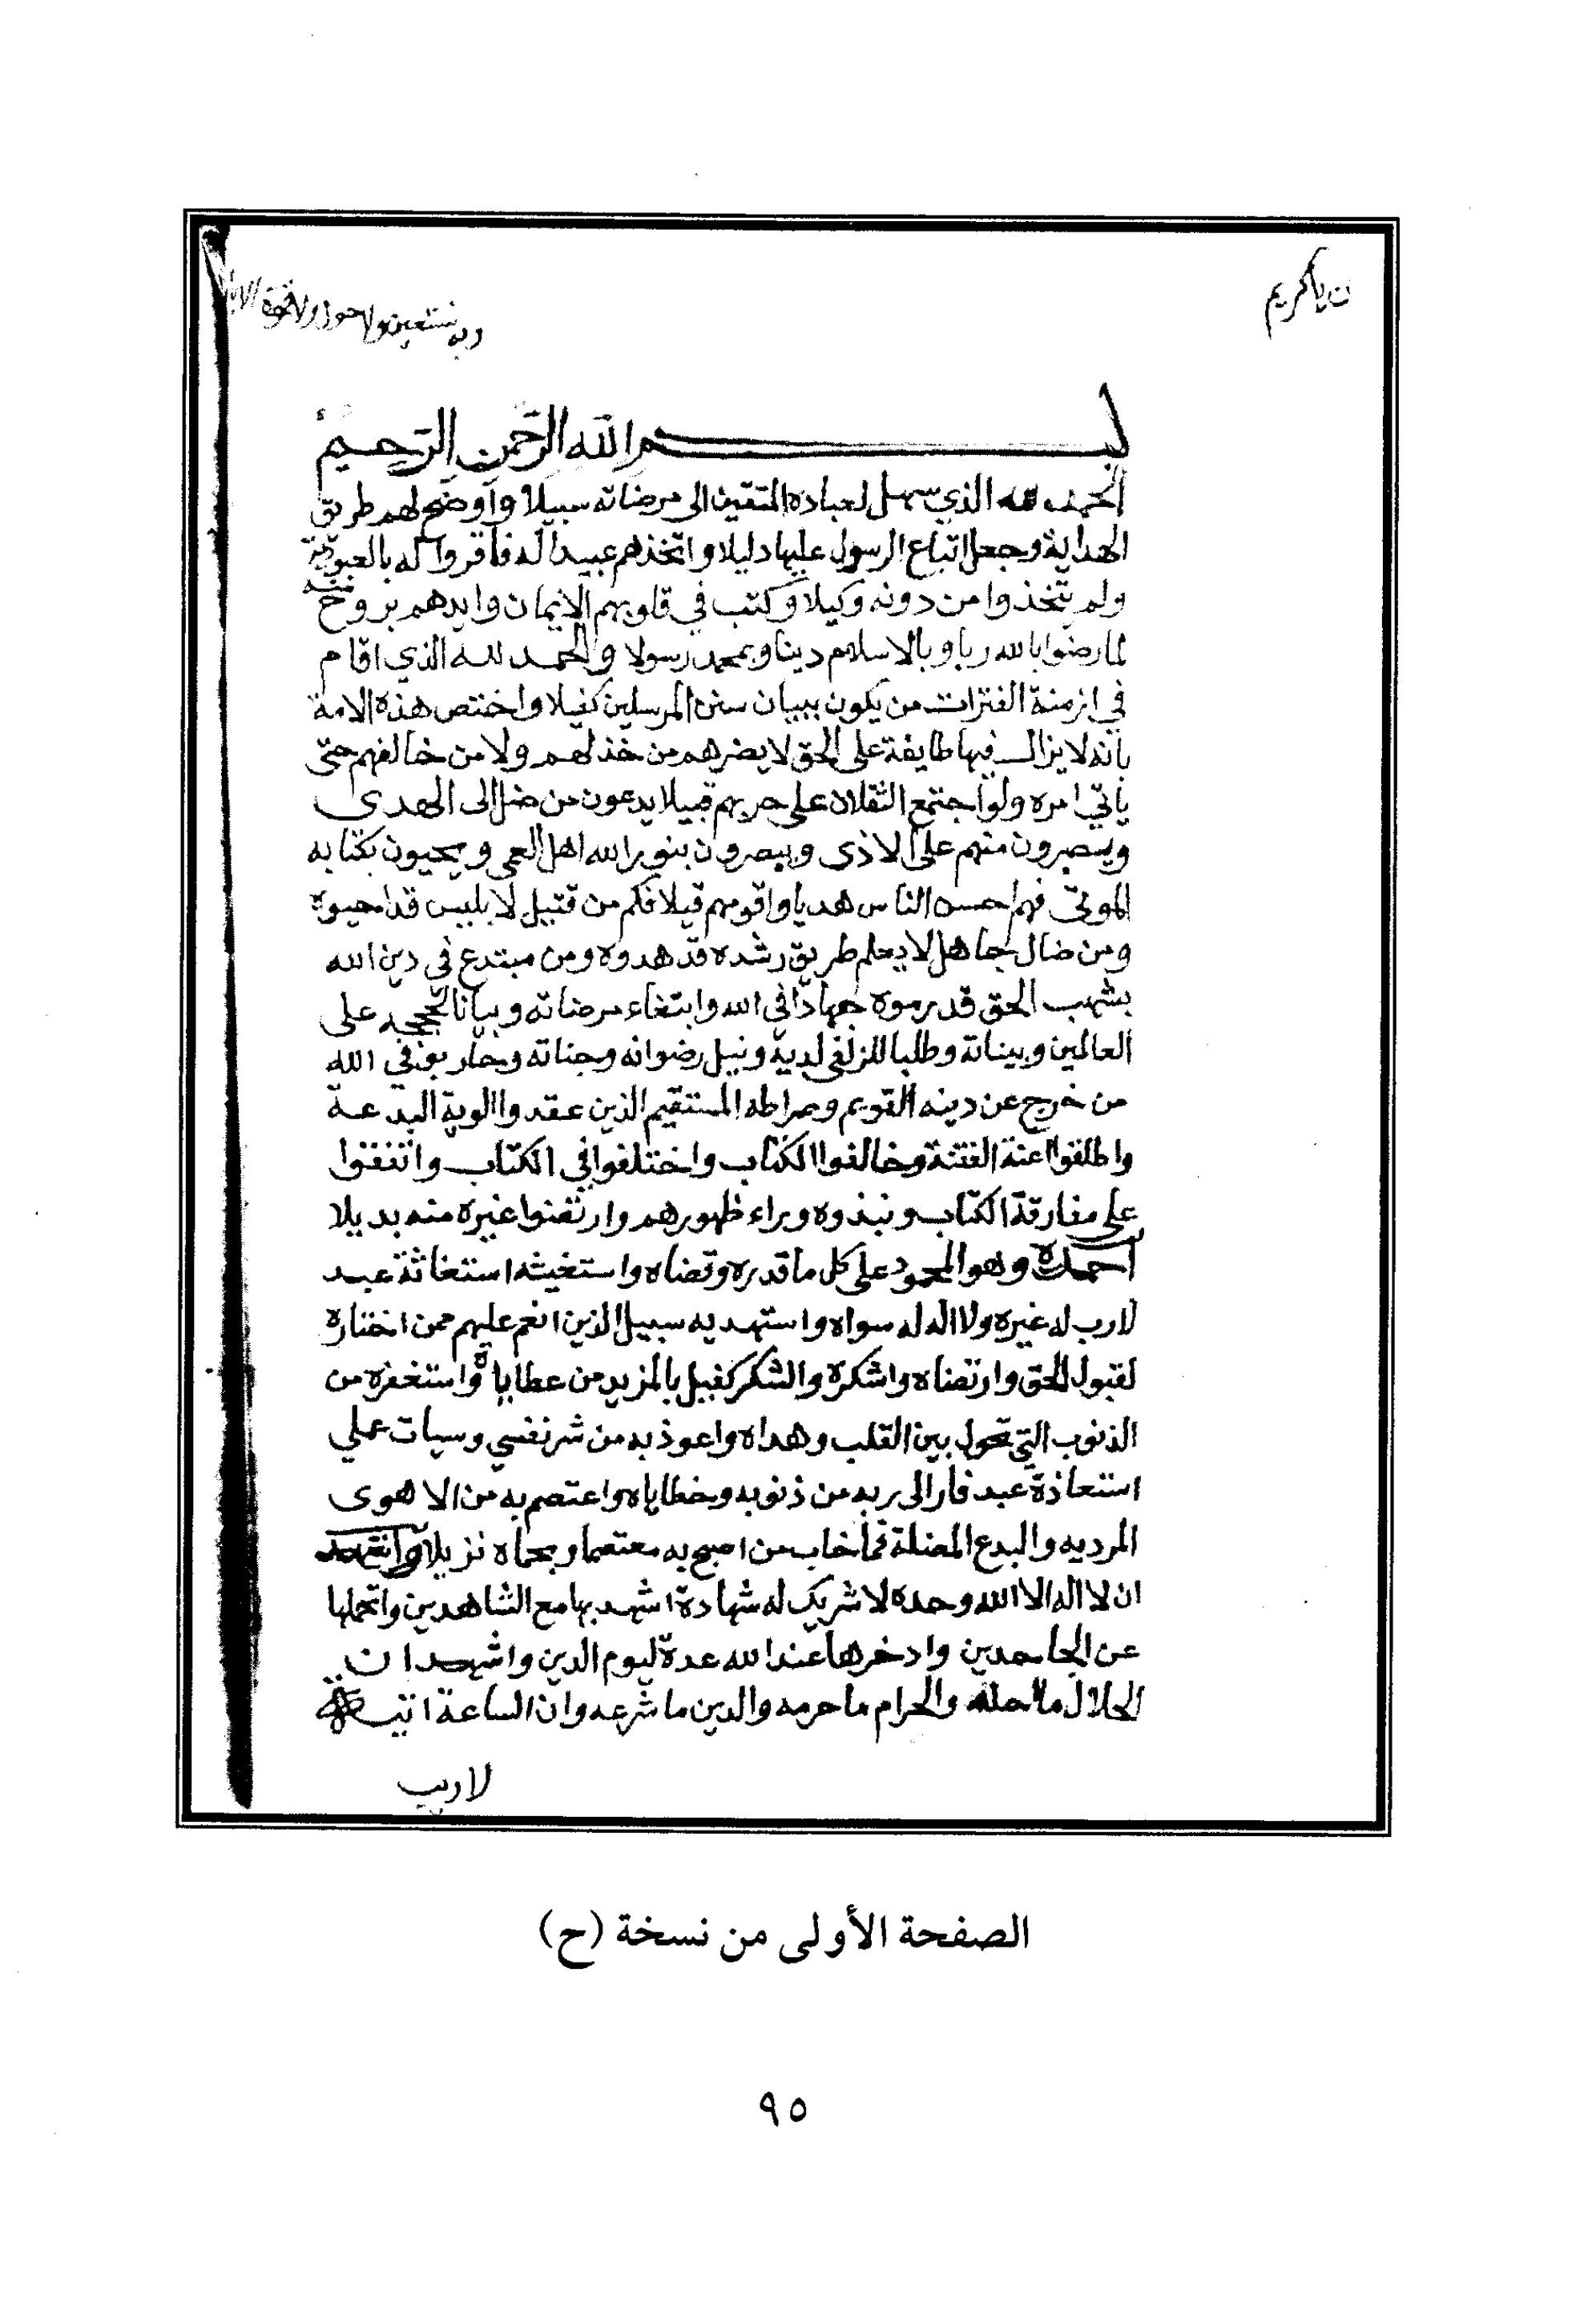 ن ياكريم
وبه نستعين ولا حول ولا قوة الا بالله
بسم الله الرحمن الرحيم
الحمد لله الذي سهل لعباده المتقين الى مرضاته سبيلا واوضح لهم طريق
الهداية وجعل اتباع الرسول عليها دليلا واتخذهم عبيدا له فاقروا له بالعبودية
ولم يتخذوا من دونه وكيلا وكتب في قلوبهم الايمان وايدهم بروح منه
لما رضوا بالله ربا وبالاسلام دينا وبمحمد رسولا والحمد لله الذي اقام
في ازمنة الفترات من يكون ببيان سنن المرسلين كفيلا واختص هذه الامة
بانه لا يزال فيها طايفة على الحق لا يضرهم من خذلهم ولا من خالفهم حتى
ياتي امره ولو اجتمع الثقلان على حربهم قبيلا يدعون من ضل الى الهدى
ويصبرون منهم على الاذى ويبصرون بنور الله اهل العمى ويحيون بكتابه
الموتى فهم احسن الناس هديا واقومهم قيلا فكم من قتيل لابليس قد احيوه
ومن ضال جاهل لا يعلم طريق رشده قد هدوه ومن مبتدع في دين الله
بشهب الحق قد رموه جهادا في الله وابتغاء مرضاته وبيانا لحججه على
العالمين وبيناته وطلبا للزلفى لديه ونيل رضوانه وجناته وحاربو في الله
من خرج عن دينه القويم وصراطه المستقيم الذين عقدوا الوية البدعة
واطلقوا اعنة الفتنة وخالفوا الكتاب واختلفوا في الكتاب واتفقوا
على مفارقة الكتاب ونبذوه وراء ظهورهم وارتضوا غيره منه بديلا
احمده وهو المحمود على كل ما قدره وقضاه واستغيثه استغاثة عبد
لا رب له غيره ولا اله له سواه واستهديه سبيل الذين انعم عليهم ممن اختاره
لقبول الحق وارتضاه واشكره والشكر كفيل بالمزيد من عطاياه واستغفره من
الذنوب التي تحول بين القلب وهداه واعوذ به من شر نفسي وسيات عملي
استعاذة عبد فار الى ربه من ذنوبه وخطاياه واعتصم به من الاهوى
المرديه والبدع المضلة فما خاب من اصبح به معتصما وبحماه نزيلا واشهد
ان لا اله الا الله وحده لا شريك له شهادة اشهد بها مع الشاهدين واتحملها
عن الجاحدين وادخرها عند الله عدة ليوم الدين واشهد ان
الحلال ما احله والحرام ما حرمه والدين ما شرعه وان الساعة اتية
لا ريب
الصفحة الأولى من نسخة (ح)
٩٥